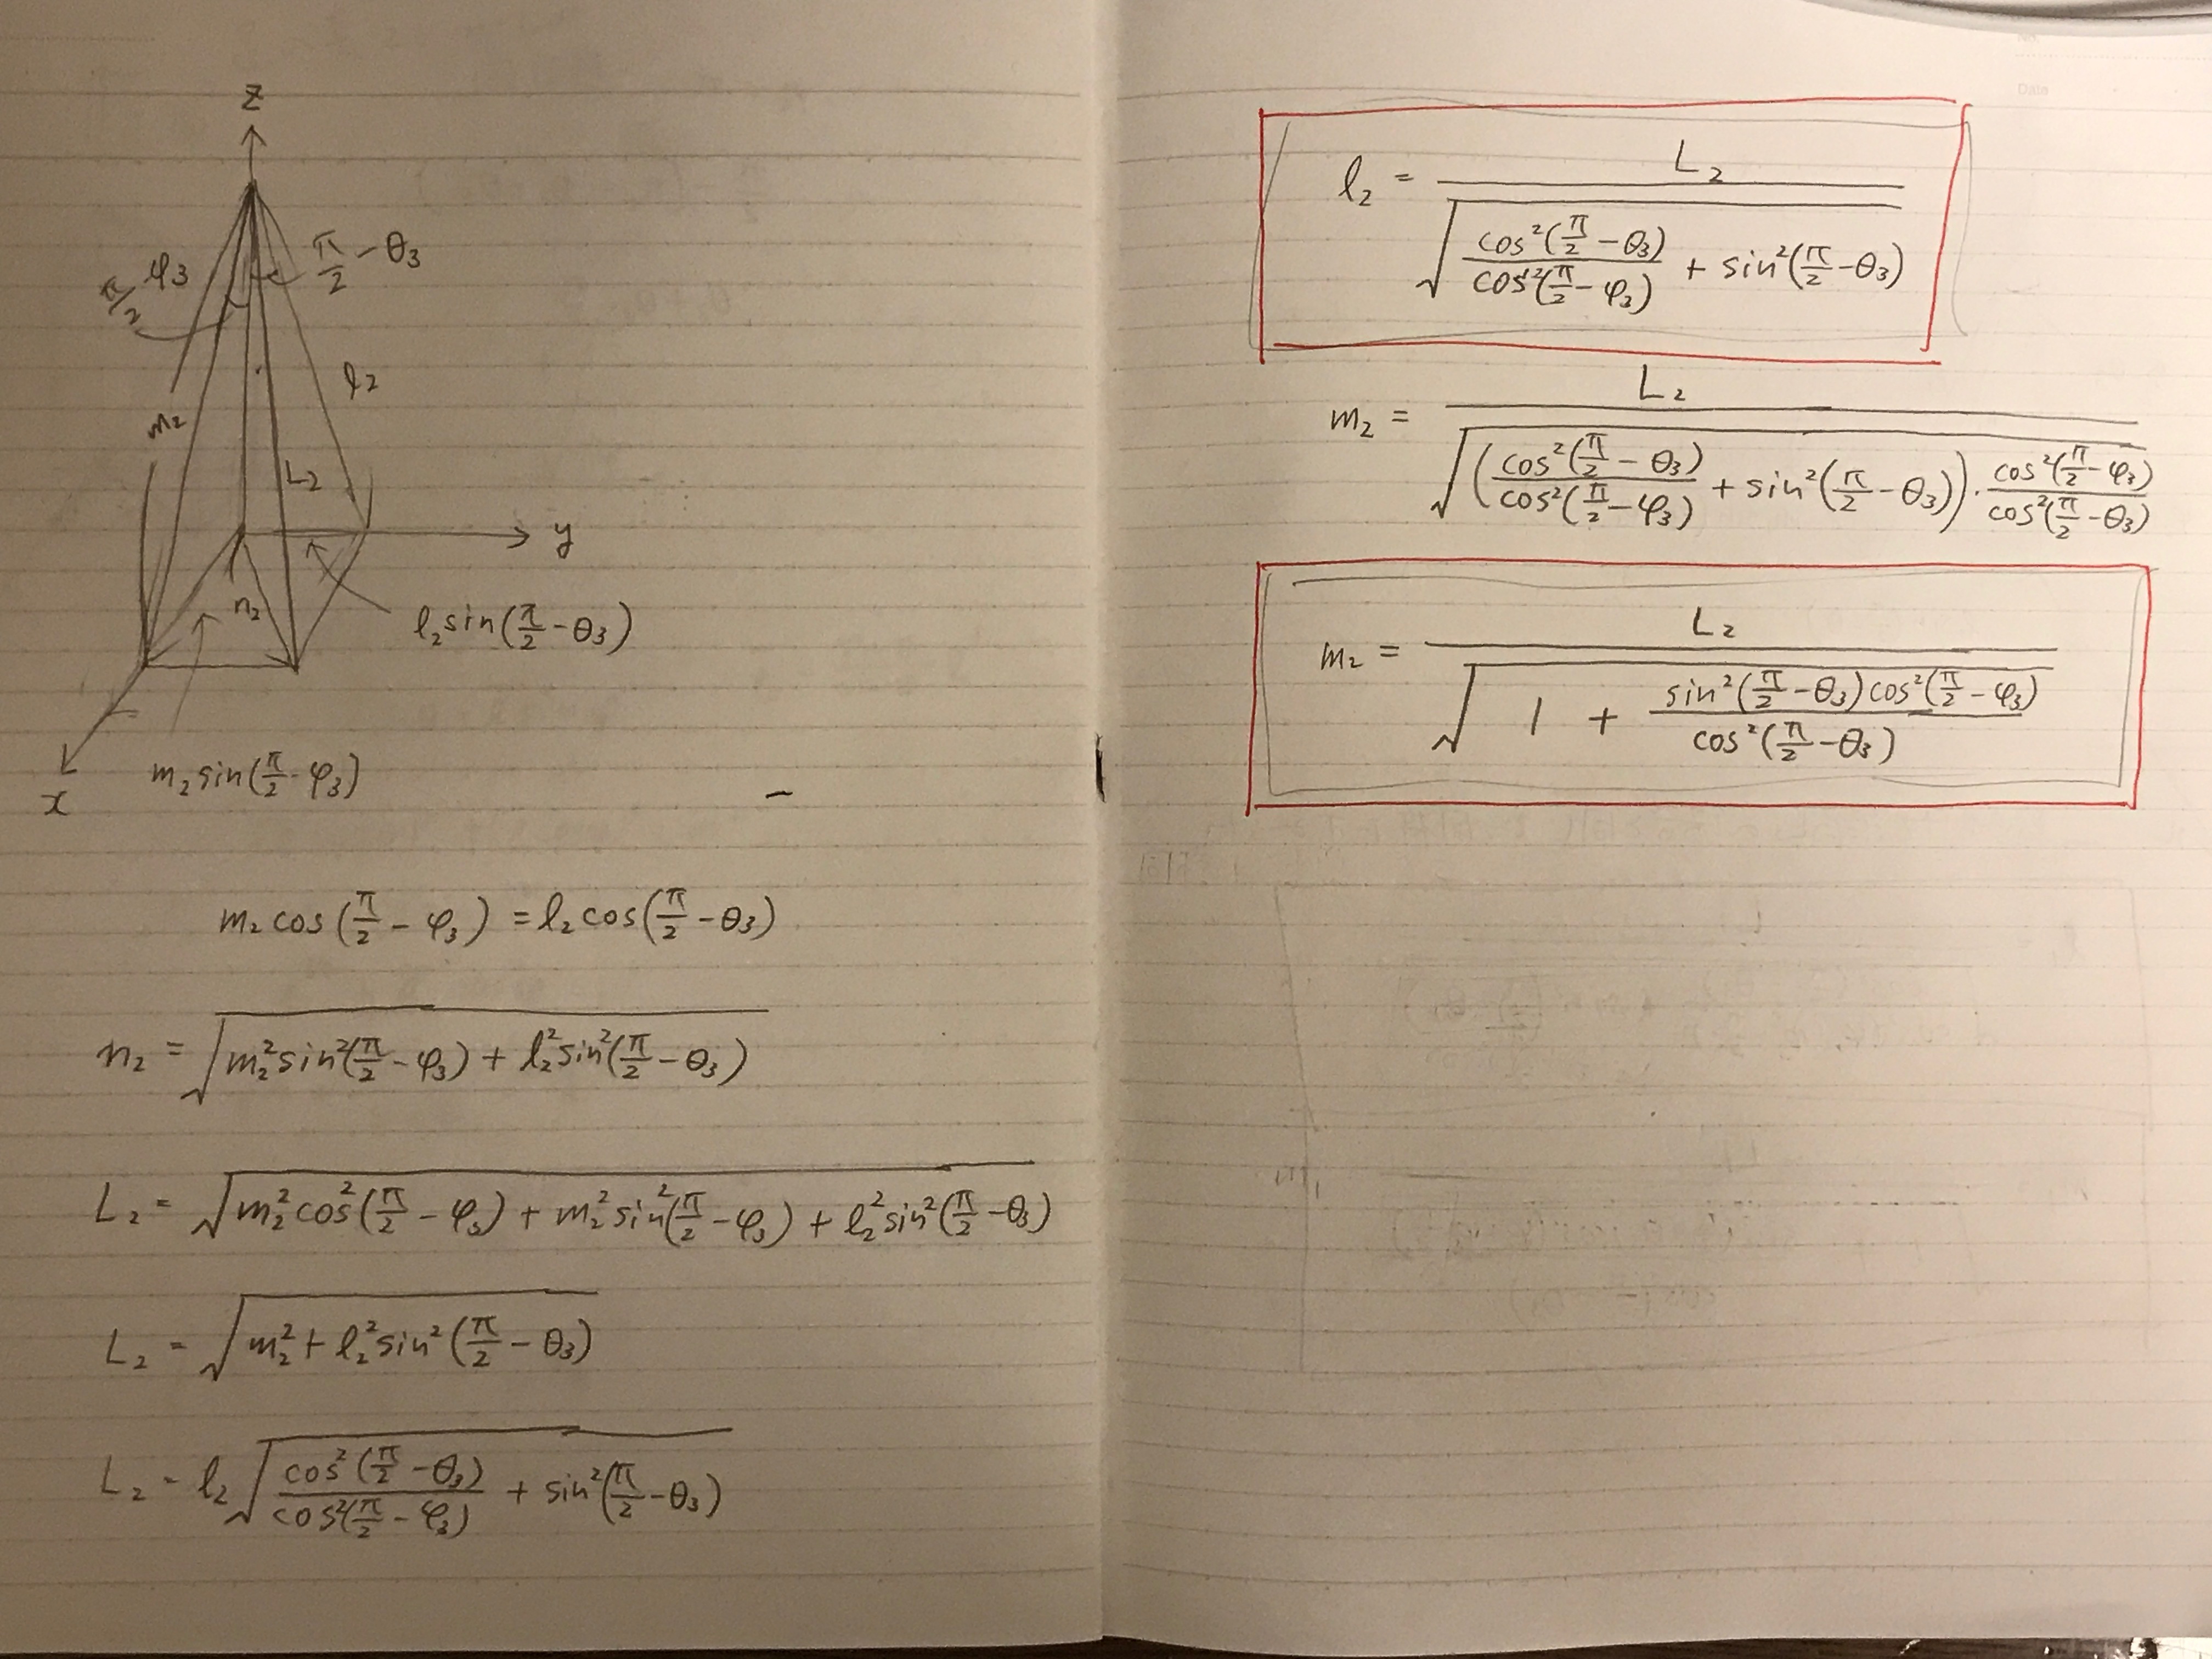 z
π/2 - φ₃
π/2 - θ₃
m₂
l₂
L₂
y
n₂
l₂ sin(π/2 - θ₃)
m₂ sin(π/2 - φ₃)
x
m₂ cos(π/2 - φ₃) = l₂ cos(π/2 - θ₃)
n₂ = √(m₂² sin²(π/2 - φ₃) + l₂² sin²(π/2 - θ₃))
L₂ = √(m₂² cos²(π/2 - φ₃) + m₂² sin²(π/2 - φ₃) + l₂² sin²(π/2 - θ₃))
L₂ = √(m₂² + l₂² sin²(π/2 - θ₃))
L₂ = l₂ √(cos²(π/2 - θ₃) / cos²(π/2 - φ₃) + sin²(π/2 - θ₃))
Date
l₂ = L₂ / √(cos²(π/2 - θ₃) / cos²(π/2 - φ₃) + sin²(π/2 - θ₃))
m₂ = L₂ / √((cos²(π/2 - θ₃) / cos²(π/2 - φ₃) + sin²(π/2 - θ₃)) · cos²(π/2 - φ₃) / cos²(π/2 - θ₃))
m₂ = L₂ / √(1 + sin²(π/2 - θ₃) cos²(π/2 - φ₃) / cos²(π/2 - θ₃))